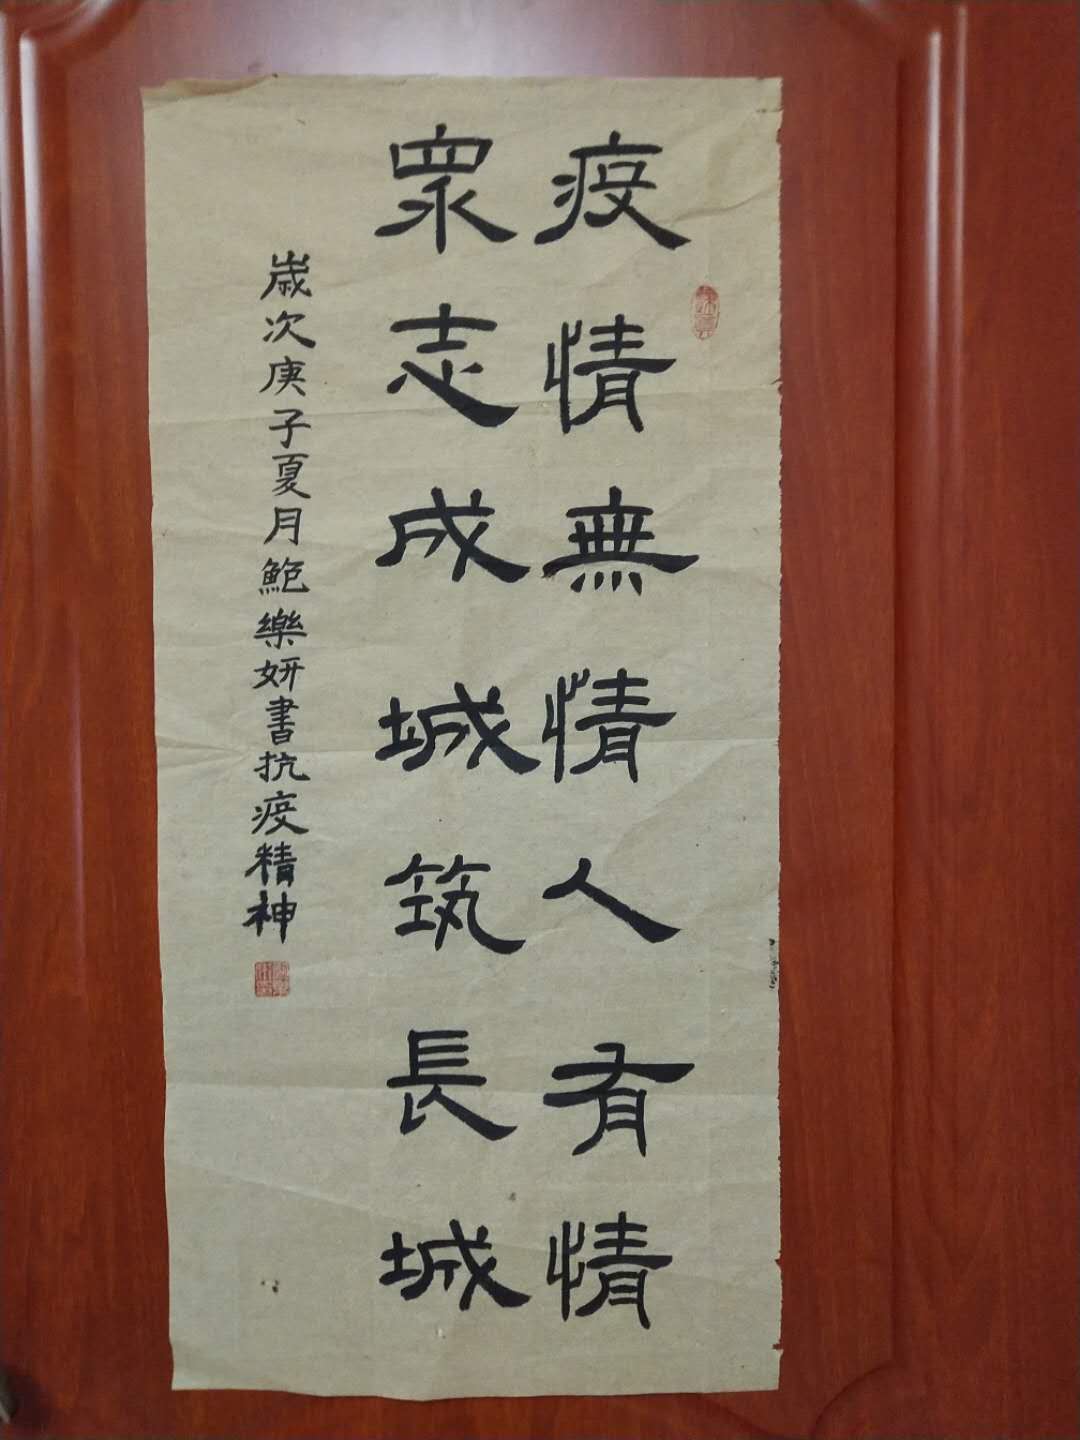 疫情無情人有情
眾志成城筑長城
歲次庚子夏月鮑樂妍書抗疫精神